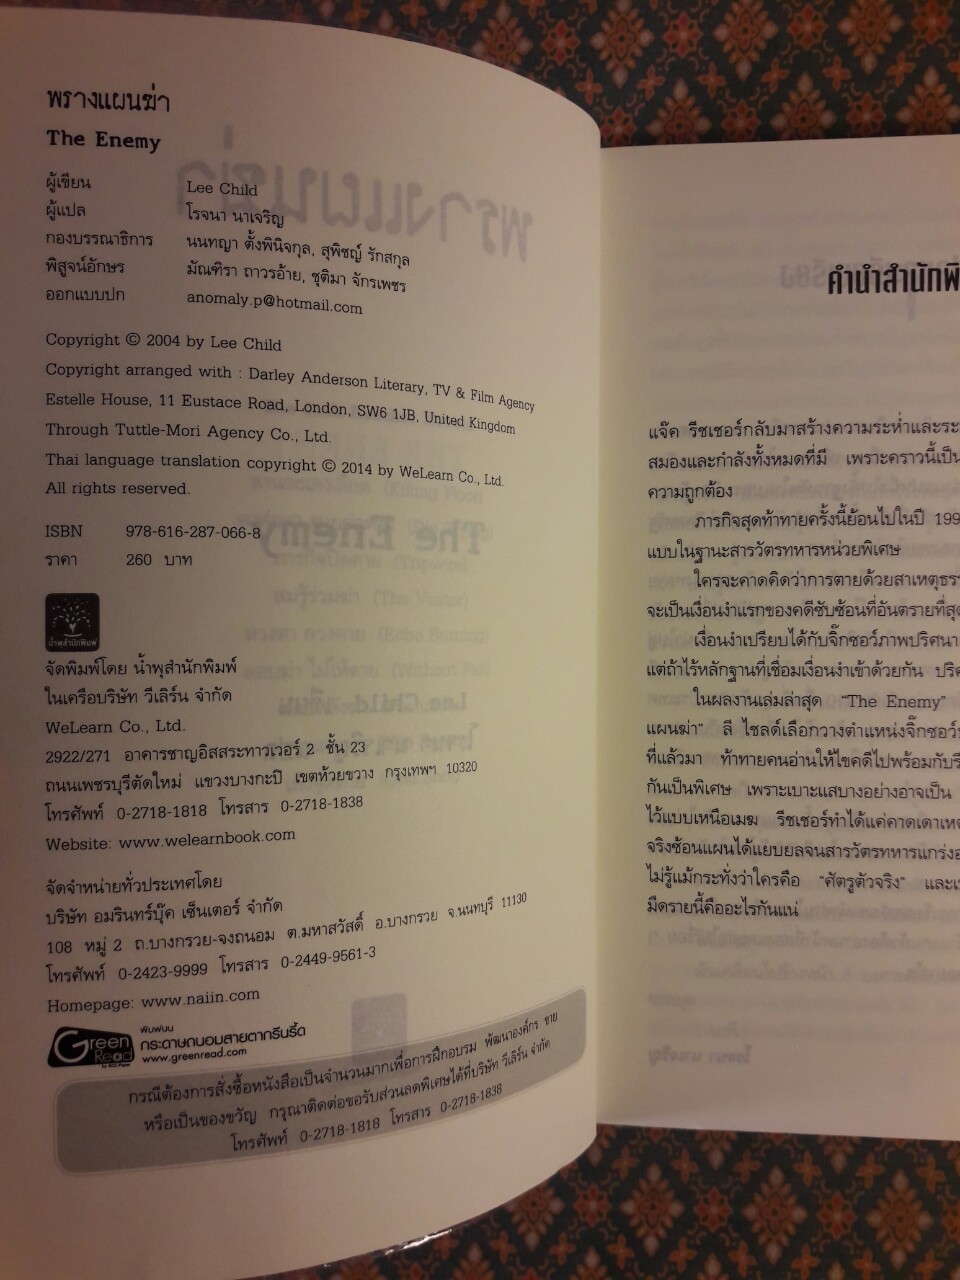 พรางแผนฆ่า
The Enemy
ผู้เขียน Lee Child
ผู้แปล โรจนา นาเจริญ
กองบรรณาธิการ นนทญา ตั้งพินิจกุล, สุพิชญ์ รักสกุล
พิสูจน์อักษร มัณฑิรา ถาวรอ้าย, ชุติมา จักรเพชร
ออกแบบปก anomaly.p@hotmail.com
Copyright © 2004 by Lee Child
Copyright arranged with : Darley Anderson Literary, TV & Film Agency
Estelle House, 11 Eustace Road, London, SW6 1JB, United Kingdom
Through Tuttle-Mori Agency Co., Ltd.
Thai language translation copyright © 2014 by WeLearn Co., Ltd.
All rights reserved.
ISBN 978-616-287-066-8
ราคา 260 บาท
น้ำพุสำนักพิมพ์
จัดพิมพ์โดย น้ำพุสำนักพิมพ์
ในเครือบริษัท วีเลิร์น จำกัด
WeLearn Co., Ltd.
2922/271 อาคารชาญอิสสระทาวเวอร์ 2 ชั้น 23
ถนนเพชรบุรีตัดใหม่ แขวงบางกะปิ เขตห้วยขวาง กรุงเทพฯ 10320
โทรศัพท์ 0-2718-1818 โทรสาร 0-2718-1838
Website: www.welearnbook.com
จัดจำหน่ายทั่วประเทศโดย
บริษัท อมรินทร์บุ๊ค เซ็นเตอร์ จำกัด
108 หมู่ 2 ถ.บางกรวย-จงถนอม ต.มหาสวัสดิ์ อ.บางกรวย จ.นนทบุรี 11130
โทรศัพท์ 0-2423-9999 โทรสาร 0-2449-9561-3
Homepage: www.naiin.com
Green Read
พิมพ์บน
กระดาษถนอมสายตากรีนรี้ด
www.greenread.com
กรณีต้องการสั่งซื้อหนังสือเป็นจำนวนมากเพื่อการฝึกอบรม พัฒนาองค์กร ขาย
หรือเป็นของขวัญ กรุณาติดต่อขอรับส่วนลดพิเศษได้ที่บริษัท วีเลิร์น จำกัด
โทรศัพท์ 0-2718-1818 โทรสาร 0-2718-1838
คำนำสำนักพิ
แจ๊ค รีชเชอร์กลับมาสร้างความระห่ำและระ
สมองและกำลังทั้งหมดที่มี เพราะคราวนี้เป็น
ความถูกต้อง
ภารกิจสุดท้าทายครั้งนี้ย้อนไปในปี 199
แบบในฐานะสารวัตรทหารหน่วยพิเศษ
ใครจะคาดคิดว่าการตายด้วยสาเหตุธรร
จะเป็นเงื่อนงำแรกของคดีซับซ้อนที่อันตรายที่สุด
เงื่อนงำเปรียบได้กับจิ๊กซอว์ภาพปริศนา
แต่ถ้าไร้หลักฐานที่เชื่อมเงื่อนงำเข้าด้วยกัน ปริศ
ในผลงานเล่มล่าสุด “The Enemy”
แผนฆ่า” ลี ไชลด์เลือกวางตำแหน่งจิ๊กซอว์
ที่แล้วมา ท้าทายคนอ่านให้ไขคดีไปพร้อมกับรี
กันเป็นพิเศษ เพราะเบาะแสบางอย่างอาจเป็น
ไว้แบบเหนือเมฆ รีชเชอร์ทำได้แค่คาดเดาเหตุ
จริงซ้อนแผนได้แยบยลจนสารวัตรทหารแกร่งอ
ไม่รู้แม้กระทั่งว่าใครคือ “ศัตรูตัวจริง” และเ
มืดรายนี้คืออะไรกันแน่